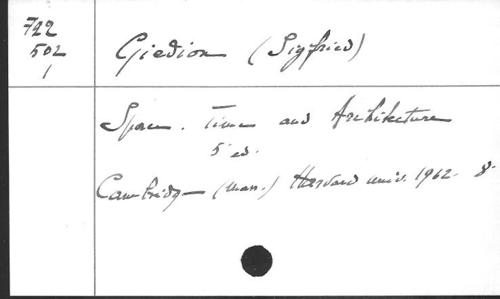 722
502
1
Giedion (Sigfried)
Space. Time and Architecture
5 ed.
Cambridge (Mass.) Harvard univ. 1962. 8.